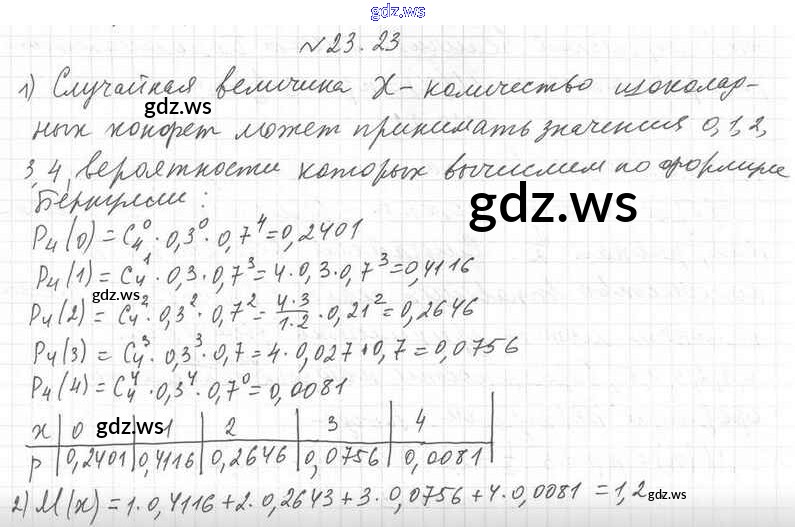 gdz.ws
№23.23
1) Случайная величина X - количество шоколад-
gdz.ws
ных конфет может принимать значения 0, 1, 2,
3, 4, вероятности которых вычислим по формуле
Бернулли:
gdz.ws
P₄(0) = C₄⁰ · 0,3⁰ · 0,7⁴ = 0,2401
P₄(1) = C₄¹ · 0,3 · 0,7³ = 4 · 0,3 · 0,7³ = 0,4116
gdz.ws
P₄(2) = C₄² · 0,3² · 0,7² = 4·3/1·2 · 0,21² = 0,2646
P₄(3) = C₄³ · 0,3³ · 0,7 = 4 · 0,027 · 0,7 = 0,0756
P₄(4) = C₄⁴ · 0,3⁴ · 0,7⁰ = 0,0081
x | 0 | 1 | 2 | 3 | 4
gdz.ws
p | 0,2401 | 0,4116 | 0,2646 | 0,0756 | 0,0081
2) M(x) = 1 · 0,4116 + 2 · 0,2643 + 3 · 0,0756 + 4 · 0,0081 = 1,2
gdz.ws